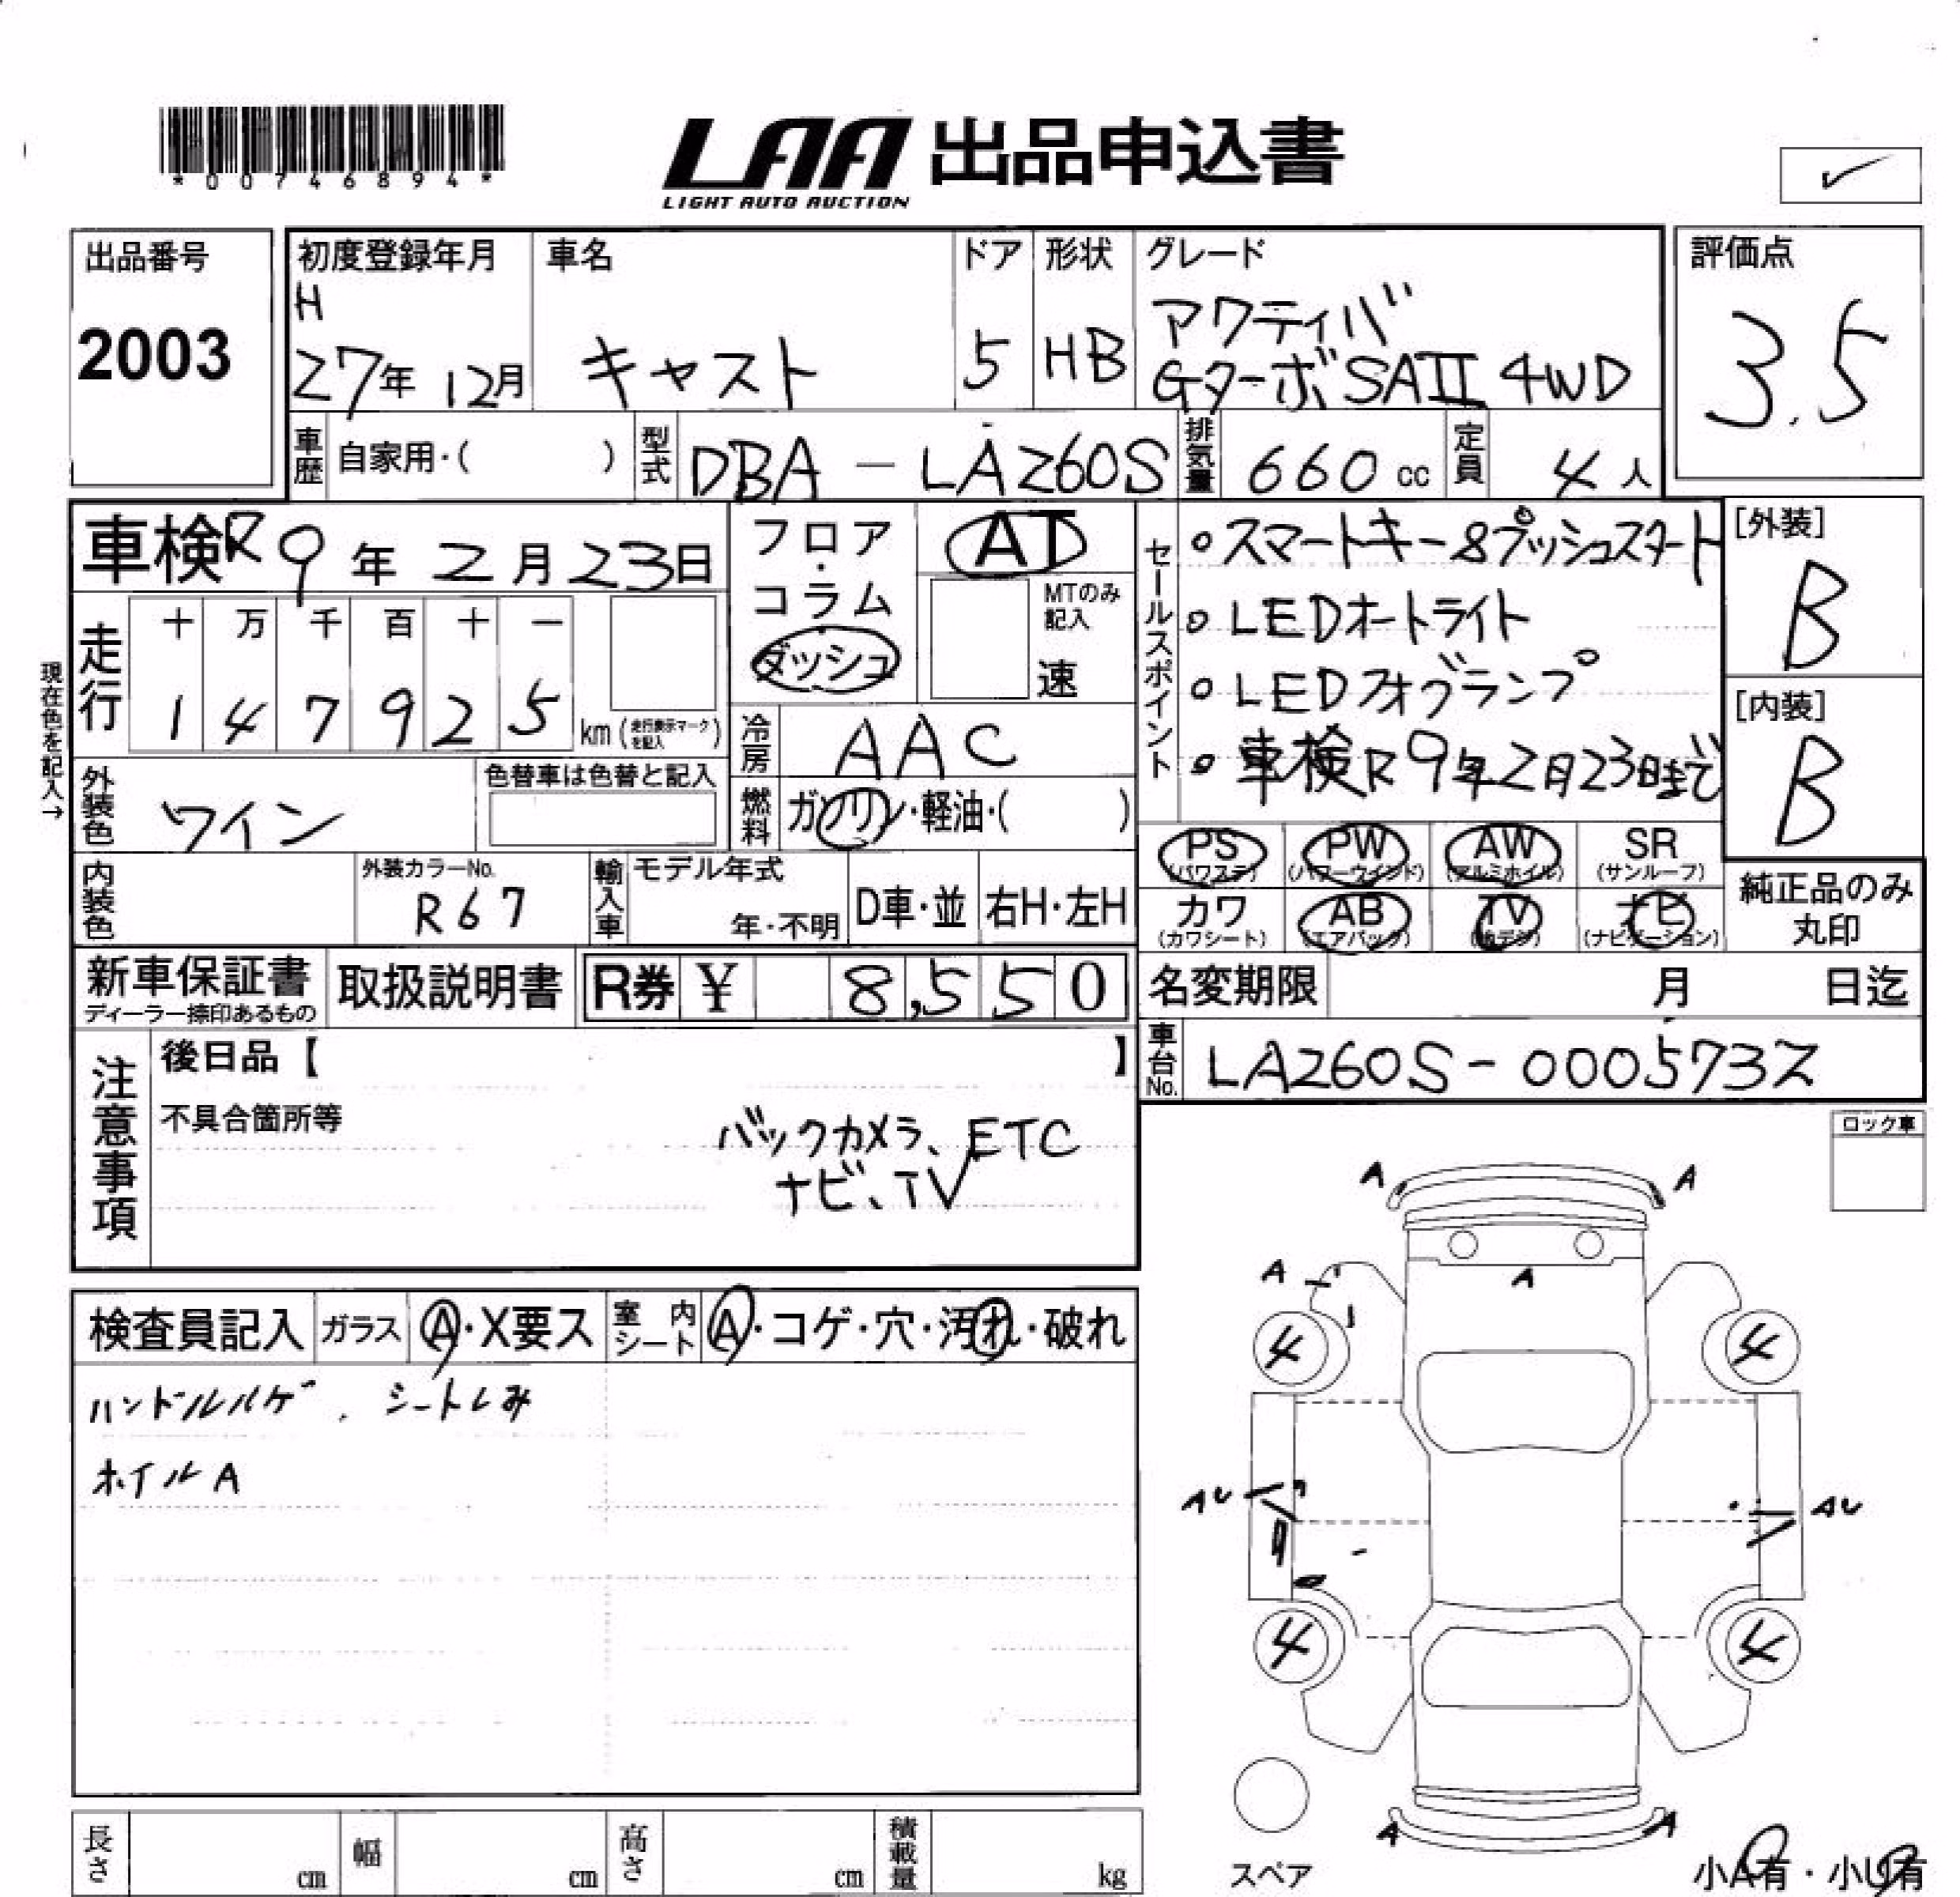 *00746894*
LAA 出品申込書
LIGHT AUTO AUCTION
出品番号
2003
初度登録年月
H
27年 12月
車名
キャスト
ドア
5
形状
HB
グレード
アクティバ
Gターボ SAII 4WD
評価点
3.5
車歴 自家用・( )
型式 DBA - LA260S
排気量 660 cc
定員 4人
車検 R9年 2月 23日
フロア・コラム
ダッシュ
AT
MTのみ記入
速
セールスポイント
○スマートキー&プッシュスタート
○LEDオートライト
○LEDフォグランプ
○車検R9年2月23日まで
[外装]
B
[内装]
B
現在色を記入→
走行
十 万 千 百 十 一
1 4 7 9 2 5 km (走行表示マークを記入)
冷房 AAC
外装色 ワイン
色替車は色替と記入
燃料 ガソリン・軽油・( )
内装色
外装カラーNo.
R67
輸入車
モデル年式
年・不明
D車・並
右H・左H
PS (パワステ)
PW (パワーウインド)
AW (アルミホイル)
SR (サンルーフ)
カワ (カワシート)
AB (エアバック)
TV (地デジ)
ナビ (ナビゲーション)
純正品のみ
丸印
新車保証書
ディーラー捺印あるもの
取扱説明書
R券 ¥ 8,550
名変期限 月 日迄
車台No. LA260S-0005737
注意事項
後日品【 】
不具合箇所等
バックカメラ、ETC
ナビ、TV
ロック車
検査員記入
ガラス A・X要ス
室内シート A・コゲ・穴・汚れ・破れ
ハンドルハゲ、シートしみ
ホイルA
A A
A A
4 4
AU AU
4 4
A A
スペア
小A有・小U有
長さ cm
幅 cm
高さ cm
積載量 kg